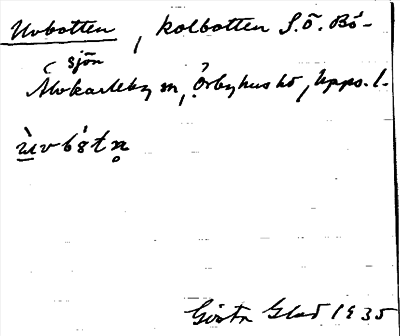 Uvbotten, kolbotten S.Ö. Bö-
sjön
Älvkarleby sn, Örbyhus hd, Upps. l.
ùvbótn̥
Gösta Glad 1935